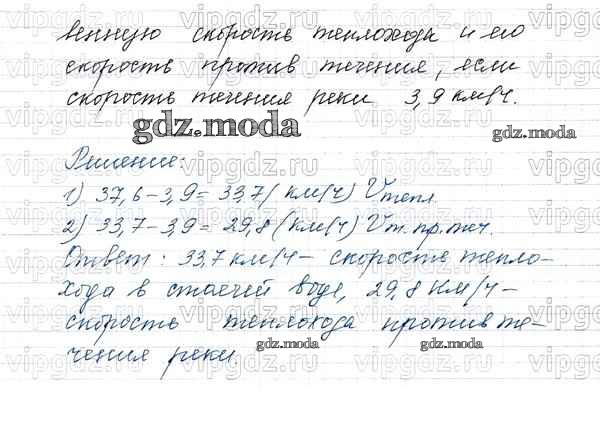 венную скорость теплохода и его
скорость против течения, если
скорость течения реки 3,9 км/ч.
gdz.moda
gdz.moda
Решение:
1) 37,6-3,9= 33,7( км/ч) Vтепл.
2) 33,7-3,9= 29,8(км/ч) Vт.пр.теч.
Ответ: 33,7 км/ч- скорость тепло-
хода в стоячей воде, 29,8 км/ч-
скорость теплохода против те-
чения реки.
gdz.moda
gdz.moda